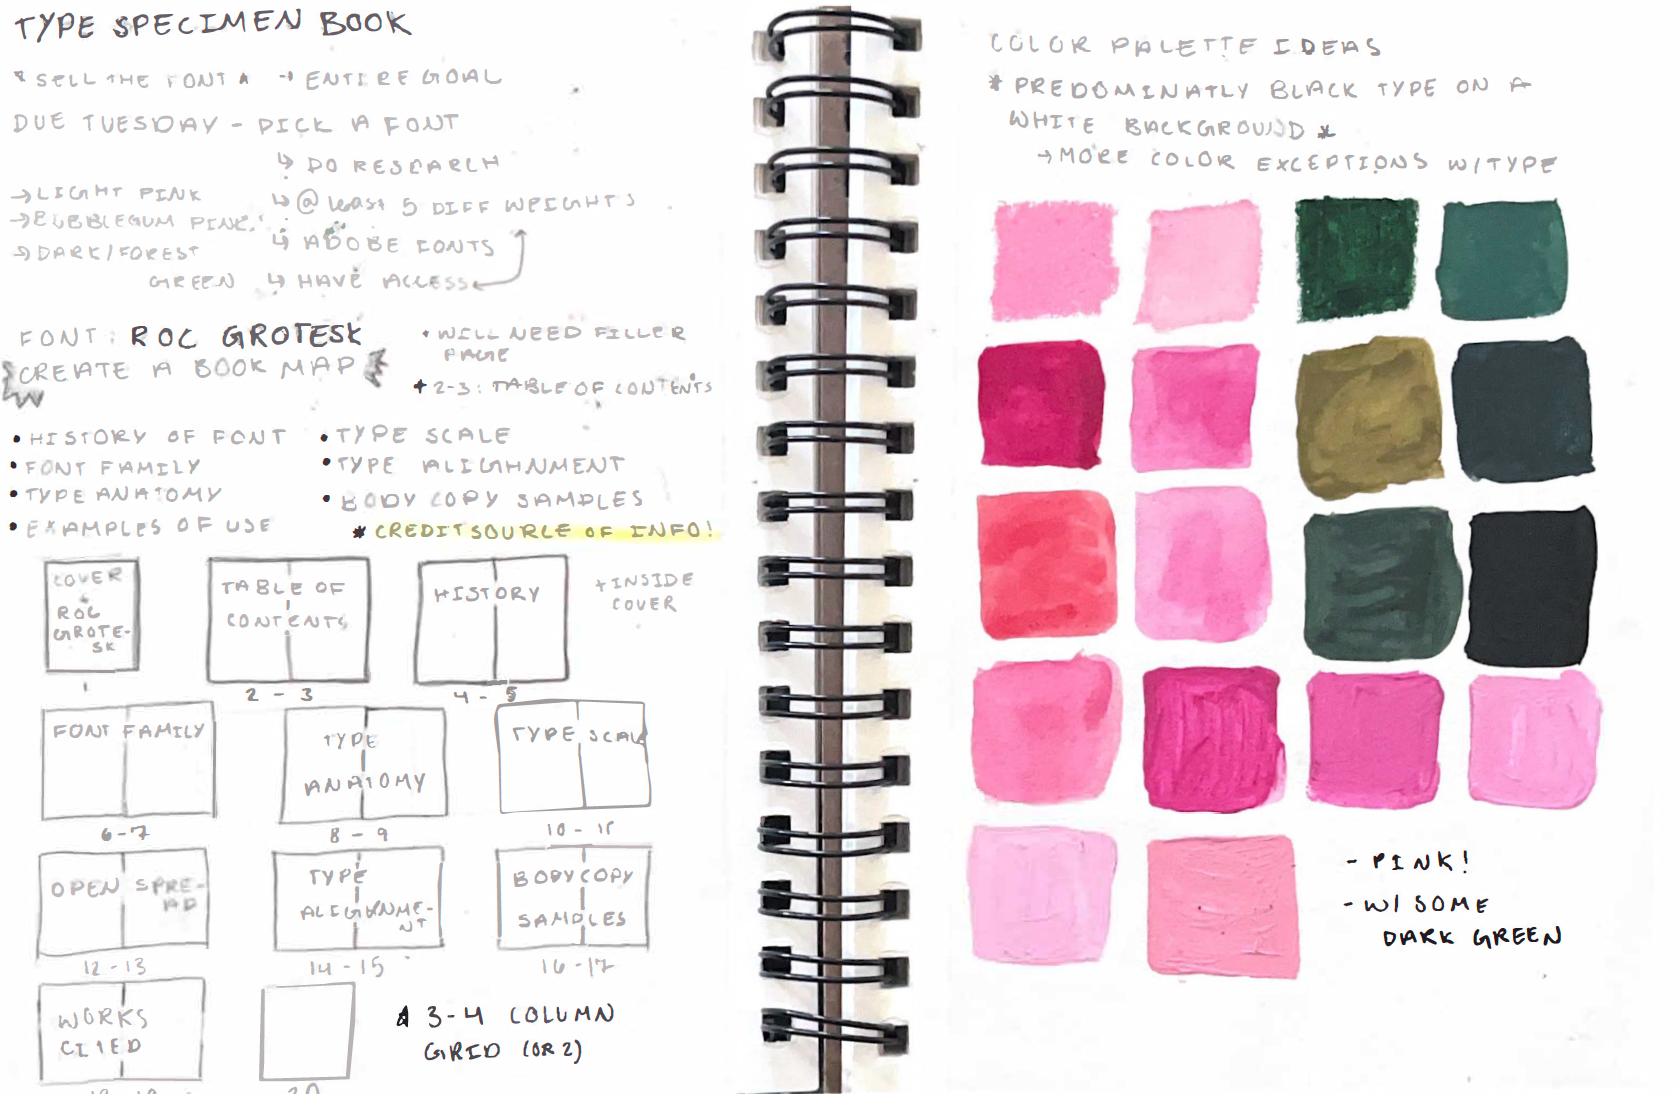 TYPE SPECIMEN BOOK
* SELL THE FONT * → ENTIRE GOAL
DUE TUESDAY - PICK A FONT
↳ DO RESEARCH
↳ @ least 5 DIFF WEIGHTS
↳ ADOBE FONTS
↳ HAVE ACCESS
→ LIGHT PINK
→ BUBBLEGUM PINK
→ DARK/FOREST
GREEN
FONT: ROC GROTESK
CREATE A BOOK MAP
+ WILL NEED FILLER
PAGE
+ 2-3: TABLE OF CONTENTS
• HISTORY OF FONT
• FONT FAMILY
• TYPE ANATOMY
• EXAMPLES OF USE
• TYPE SCALE
• TYPE ALIGHNMENT
• BODY COPY SAMPLES
* CREDIT SOURCE OF INFO!
COVER
ROC
GROTE-
SK
1
TABLE OF
CONTENTS
2 - 3
HISTORY
4 - 5
+ INSIDE
COVER
FONT FAMILY
6-7
TYPE
ANATOMY
8 - 9
TYPE SCALE
10 - 11
OPEN SPRE-
AD
12-13
TYPE
ALIGHNME-
NT
14-15
BODY COPY
SAMPLES
16-17
WORKS
CITED
20
3-4 COLUMN
GRID (OR 2)
COLOR PALETTE IDEAS
* PREDOMINATLY BLACK TYPE ON A
WHITE BACKGROUND *
→ MORE COLOR EXCEPTIONS W/TYPE
- PINK!
- W/ SOME
DARK GREEN